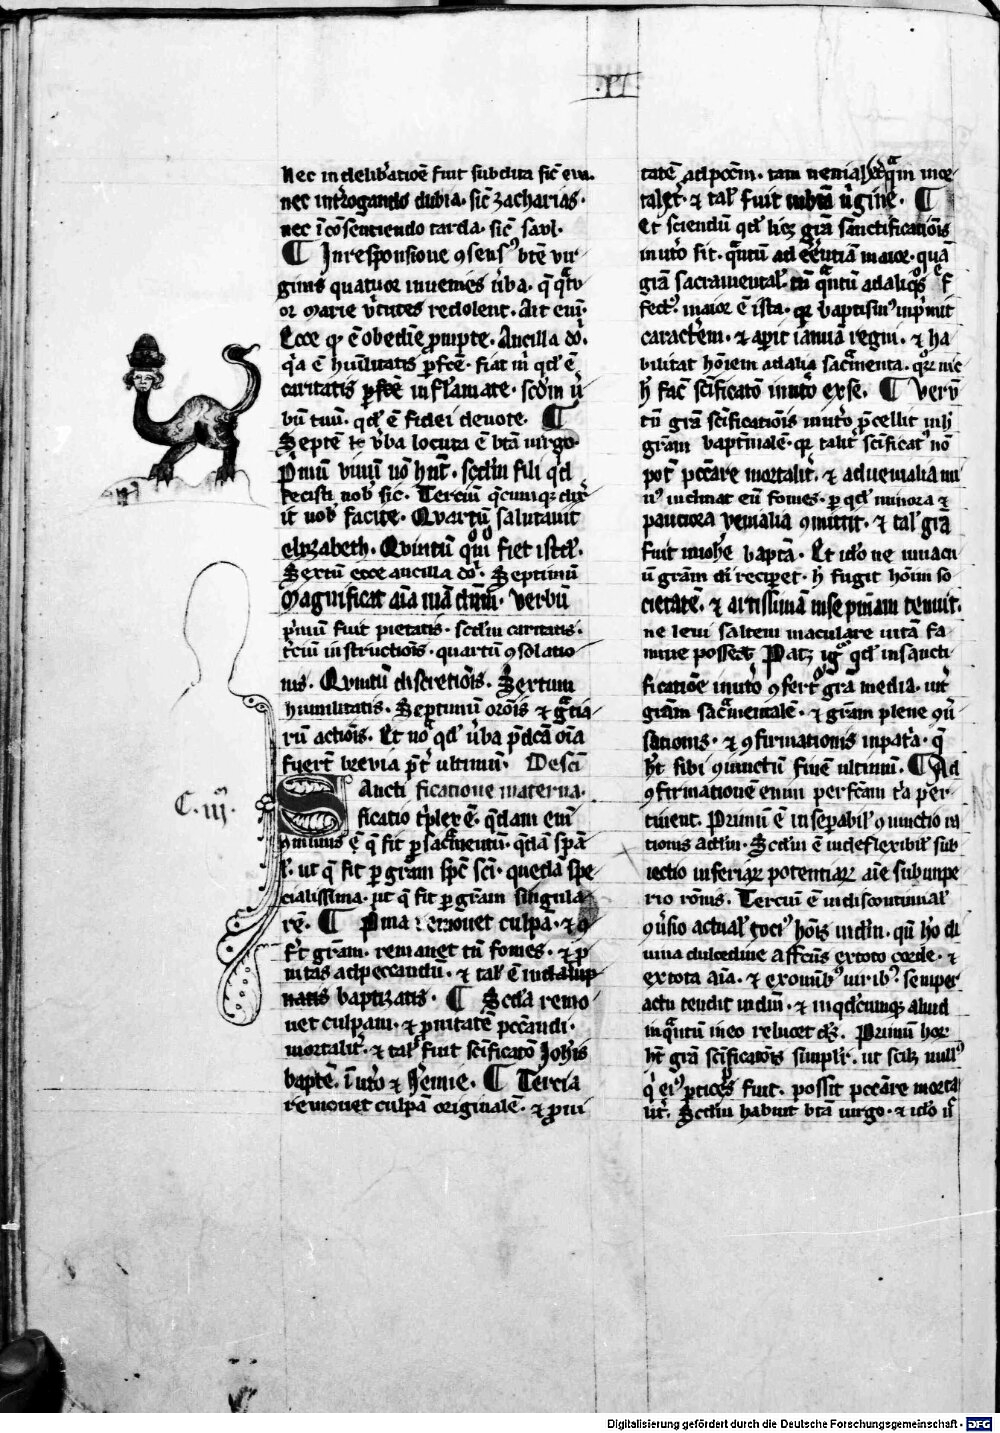 .VI.
Nec in delib̾atioē fuit subdita sic̄ eua.
nec int̾rogando dubia. sic̄ zacharias.
nec ī cōsentiendo tarda. sic̄ saul.
¶ In responsione ꝯsens⁹ btē vir
ginis quatuor inuenies v̾ba. q̄ q̄tu
or Marie v̾tutes redolent. Ait eni.
Ecce qꝫ ē obediē p̄mpte. Ancilla do̾.
q̄a ē hu̅ilitatis p̄fcē. fiat m̄ qd̾ ē
caritatis inflamate. scdm v̾
bū tuū. qd̾ ē fidei deuote. ¶
Septē v̾ba locuta ē btā virgo.
P̾mū virū nō . scdm fili qd̾
fecisti nob̾ sic̄. Terciū q̄cumqꝫ dix̾
it uob̾ facite. Quartū salutauit
elyzabeth. Quintū quō fiet istd̾.
Sextū ecce ancilla do̾. Septimū
Magnificat aīa mā dn̄m. Verbū
p̾mū fuit pietatis. scdm caritatis.
t̾ciū instructiōis. quartū ꝯsolatio
nis. Quintū discretiōis. Sextum
humilitatis. Septimū orōis et gr̄cia
rū actiōis. Et nō qd̾ v̾ba p̄dcā oīa
fuer̄t brevia p̄t̾ ultimū. De sci
C. iij.
Sancti ficatione materna.
ficatio t̾plex ē. q̄dam enī
ꝯmunis ē q̄ fit ꝑ sac̄mentū. q̄dā spā
l̾. ut q̄ fit ꝑ grām spc̄ sci. quedā spe
cialissima. ut q̄ fit ꝑ grām singula
rē. ¶ P̾ma remouet culpā. et ꝯ
f̾t grām. remanet tn̄ fomes. et p̄
nitas ad peccandū. et tal̾ ē
baptizatis. ¶ Scd̾a remo
uet culpam. et p̄nitatē pccandi.
mortalit̾. et tal̾ fuit scīficatō Joh̾is
bapte. ī ut̾o et . ¶ Tercia
remouet culpā originalē. et p̄ni
tatē ad pccm. tam uenial̾r q̄m mor
talr̾. et tal̾ fuit v̾gine. ¶
Et sciendū qd̾ licꝫ grā sanctificatiōis
in ut̾o sit. q̄ntū ad maior. quā
grā sacramental̾. tn̄ q̄ntū ad aliq̾s ef
fect⁹. maior ē ista. qꝛ baptism⁹ inp̾mit
caractem. et ap̾it ianuā regni. et ha
bilitat hōiem ad alia sac̄menta. qꝛ nic
h̾ fac̄ scīficatō in ut̾o ex se. ¶ Verū
tn̄ grā scīficatiōis in ut̾o p̄cellit
grām baptismalē. qꝛ talit̾ scificat⁹ nō
pot̄ pccare mortalit̾. et ad uenialia mi
n⁹ inclinat eū fomes. ꝑ qd̾ minora et
pauciora venialia ꝯmittit. et tal̾ grā
fuit in Joh̾e baptā. Et ido ne
grām di reciperet. h̾ fugit hoīm so
cietatē. et artissimā in se pnīam tenuit.
ne leui saltem maculare uitā fa
mine posset. Patꝫ igr̾ qd̾ in sancti
ficatiōe in ut̾o ꝯfert̾ grā media. int̾
grām sac̄mentalē. et grām plene ꝯu̾
sationis. et ꝯfirmationis in pat̾a. q̄
h̾t sibi ꝯiunctū finē ultimū. ¶ Ad
ꝯfirmatione enim perfcām t̾a per
tinent. Primū ē inseperabil̾ ꝯiunctio ra
tionis ad dm̄. Scdm ē indeflexibil̾ sub
iectio inferiorꝝ potentiarꝝ aīe sub inpe
rio rōnis. Terciū ē indiscontinual̾
ꝯu̾sio actual̾ toci⁹ hōis in dm̄. qn̄ ho di
uina dulcedine affcūs ex toto corde. et
ex tota aīa. et ex omib⁹ uirib⁹. semper
actu tendit in dm̄. et in qd̾cumqꝫ aliud
inq̄ntū in eo relucet ds̄. Primū hoꝝ
h̾t grā scīficatōis simplr̾. ut scilꝫ null⁹
q̾ ei⁹ pticeps fuit. possit pccāre morta
lit̾. Scdm habuit btā uirgo. et ido n̄
Digitalisierung gefördert durch die Deutsche Forschungsgemeinschaft - DFG